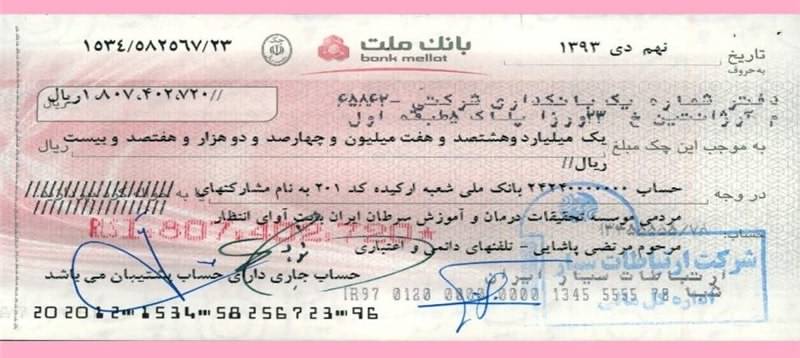 ۱۵۳۴/۵۸۲۵۶۷/۲۳
چک
بانک ملت
bank mellat
تاریخ به‌حروف نهم دی ۱۳۹۳
//۱.۸۰۷.۴۰۲.۷۲۰ریال
دفتر شماره یک بانکداری شرکتی -۶۵۸۶۲
م آرژانتین خ ۲۳ورزا پلاک ۸طبقه اول
به موجب این چک مبلغ یک میلیارد وهشتصد و هفت میلیون و چهارصد و دو هزار و هفتصد و بیست ریال
ریال//
در وجه حساب ۲۴۲۴۰۰۰۰۰۰۰ بانک ملی شعبه ارکیده کد ۲۰۱ به نام مشارکتهای یا به
مردمی موسسه تحقیقات درمان و آموزش سرطان ایران بابت آوای انتظار
RLS1.807.402.720*
حساب:
مرحوم مرتضی پاشایی - تلفنهای دائمی و اعتباری
شرکت ارتباطات سیار
ارتباطات سیار ایران
حساب جاری دارای حساب پشتیبان می باشد
شبا IR97 0120 0000 0000 1345 5555 78
اداره کل مالی
202012 1534 58256723 96